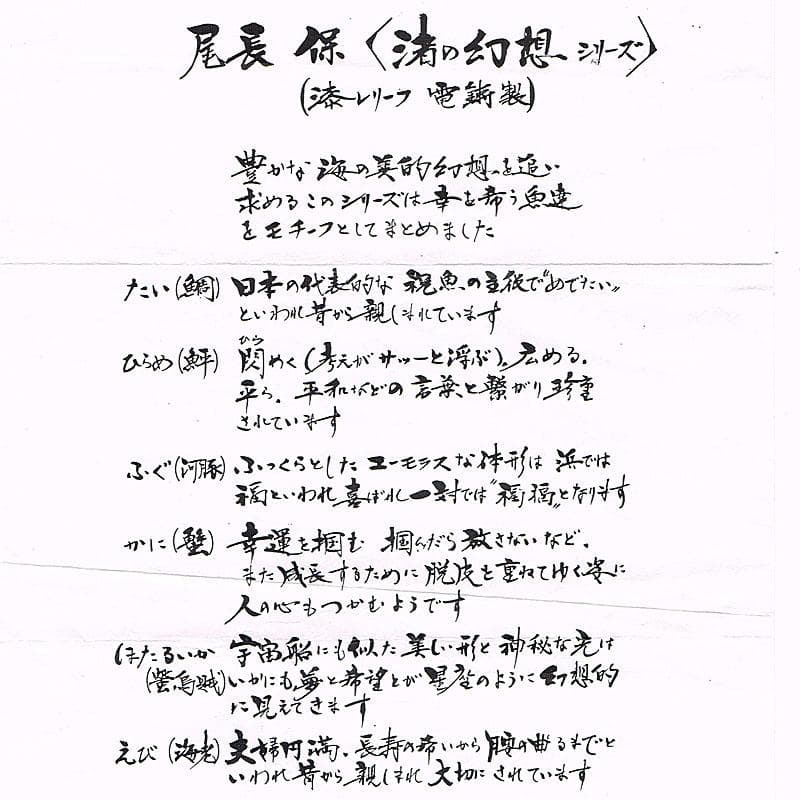 尾長 保〈渚の幻想シリーズ〉
(漆レリーフ 電鋳製)
豊かな海の美的幻想を追い
求めるこのシリーズは幸を希う魚達
をモチーフとしてまとめました
たい(鯛) 日本の代表的な祝魚の主役で“めでたい”
といわれ昔から親しまれています
ひらめ(鮃) 閃めく(考えがサッーと浮ぶ)、広める、
ひら
平ら、平和などの言葉と繋がり珍重
されています
ふぐ(河豚) ふっくらとしたユーモラスな体形は浜では
福といわれ喜ばれ一対では“福福”となります
かに(蟹) 幸運を掴む 掴んだら放さないなど、
また成長するために脱皮を重ねてゆく姿に
人の心もつかむようです
ほたるいか 宇宙船にも似た美しい形と神秘な光は
(螢烏賊) いかにも夢と希望とが星座のように幻想的
に見えてきます
えび(海老) 夫婦円満、長寿の希いから腰の曲るまでと
いわれ昔から親しまれ大切にされています